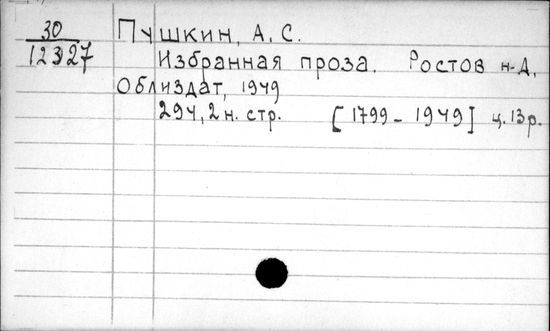 30
12327
Пушкин, А. С.
Избранная проза. Ростов н-Д,
Облиздат, 1949
294, 2 н. стр. [1799 - 1949] ц. 13 р.